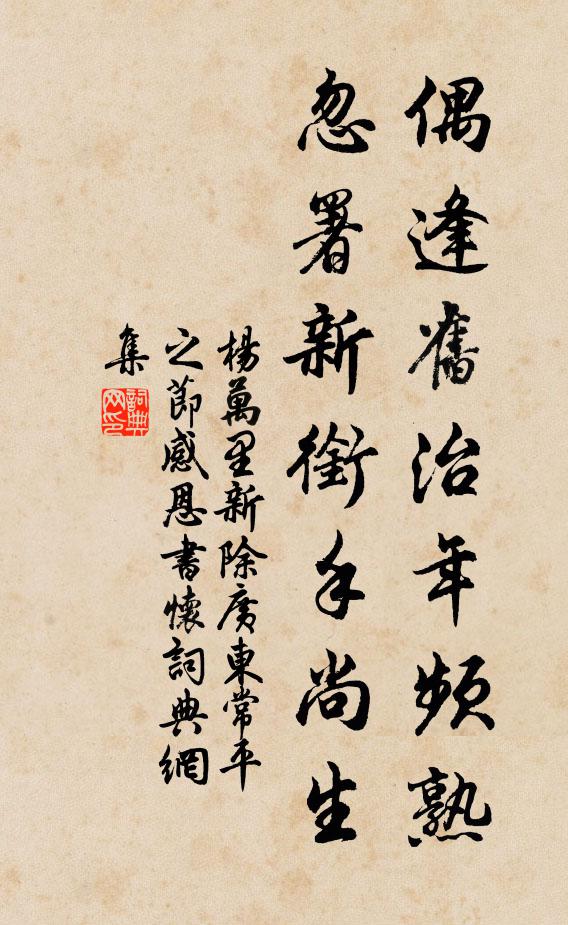 偶逢舊治年頻熟
忽署新銜手尚生
楊萬里新除廣東常平
之節感恩書懷詞典網
集
詞典
网印